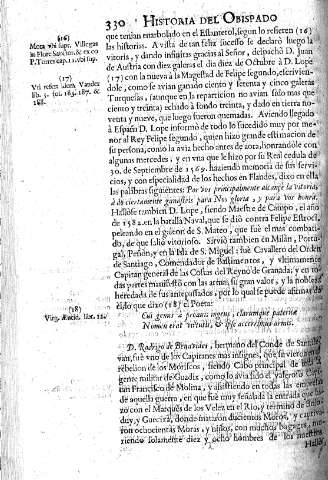 330 HISTORIA DEL OBISPADO
(16)
Mota vbi sup. Villegas
in Flore Sanctor. & ex eo
P. Torres cap. 12. vbi sup.
(17)
Vti refert idem Vander
lib. 3. fol. 183. 187. &
188.
(18)
Virg. Æneid. lib. 12.
que tenian enarbolado en el Estanterol, segun lo refieren (16)
las historias. A vista de tan feliz sucesso se declarò luego la
vitoria, y dando infinitas gracias al Señor, despachò D. Juan
de Austria con diez galeras el dia diez de Octubre à D. Lope
(17) con la nueva à la Magestad de Felipe segundo, escrivien-
dole, como se avian ganado ciento y setenta y cinco galeras
Turquesas, (aunque en la reparticion no avian sido mas que
ciento y treinta) echado à fondo treinta, y dado en tierra no-
venta y nueve, que luego fueron quemadas. Aviendo llegado
à España D. Lope informò de todo lo sucedido muy por me-
nor al Rey Felipe segundo, quien hizo grande estimacion de
su persona, como la avia hecho antes de aora, honrandole con
algunas mercedes, y en vna que le hizo por su Real cedula de
30. de Septiembre de 1569. haziendo memoria de sus servi-
cios, y con especialidad de los hechos en Flandes, dixo en ella
las palabras siguientes: Por vos principalmente alcançè la vitoria,
à vos ciertamente ganasteis para Nos gloria, y para vos honra.
Hallòse tambien D. Lope, siendo Maestre de Campo, el año
de 1582. en la batalla Naval, que se diò contra Felipe Estroci,
peleando en el galeon de S. Mateo, que fuè el mas combati-
do, de que saliò vitorioso. Sirviò tambien en Milàn, Portu-
gal, Peñon, y en la Isla de S. Miguèl: fuè Cavallero del Orden
de Santiago, Comendador de Bastimentos, y vltimamente
Capitan general de las Costas del Reyno de Granada; y en to-
das partes manifestò con las armas, su gran valor, y la nobleza
heredada de sus antepassados, por lo qual se puede afirmar de
èl lo que dixo (18) el Poeta:
Cui genus à proavis ingens, clarumque paternæ
Nomen erat virtutis, & ipse acerrimus armis.
D. Rodrigo de Benavides, hermano del Conde de Santiste-
van, fuè vno de los Capitanes mas insignes, que sirvieron en la
rebelion de los Moriscos, siendo Cabo principal de toda la
gente militar de Guadix, como lo avia sido el valeroso Capi-
tan Francisco de Molina, y assistiendo en todas las empresas
de aquella guerra, en que fuè muy señalada la entrada que hi-
zo con el Marquès de los Velez en el Rio, y termino de Boloduy,
y Guecixa, donde mataron ducientos Moros, y cautivaron
ochocientas Moras, y niños, con muchos bagages, mu-
riendo solamente diez y ocho hombres de los nuestros.
Hallò-